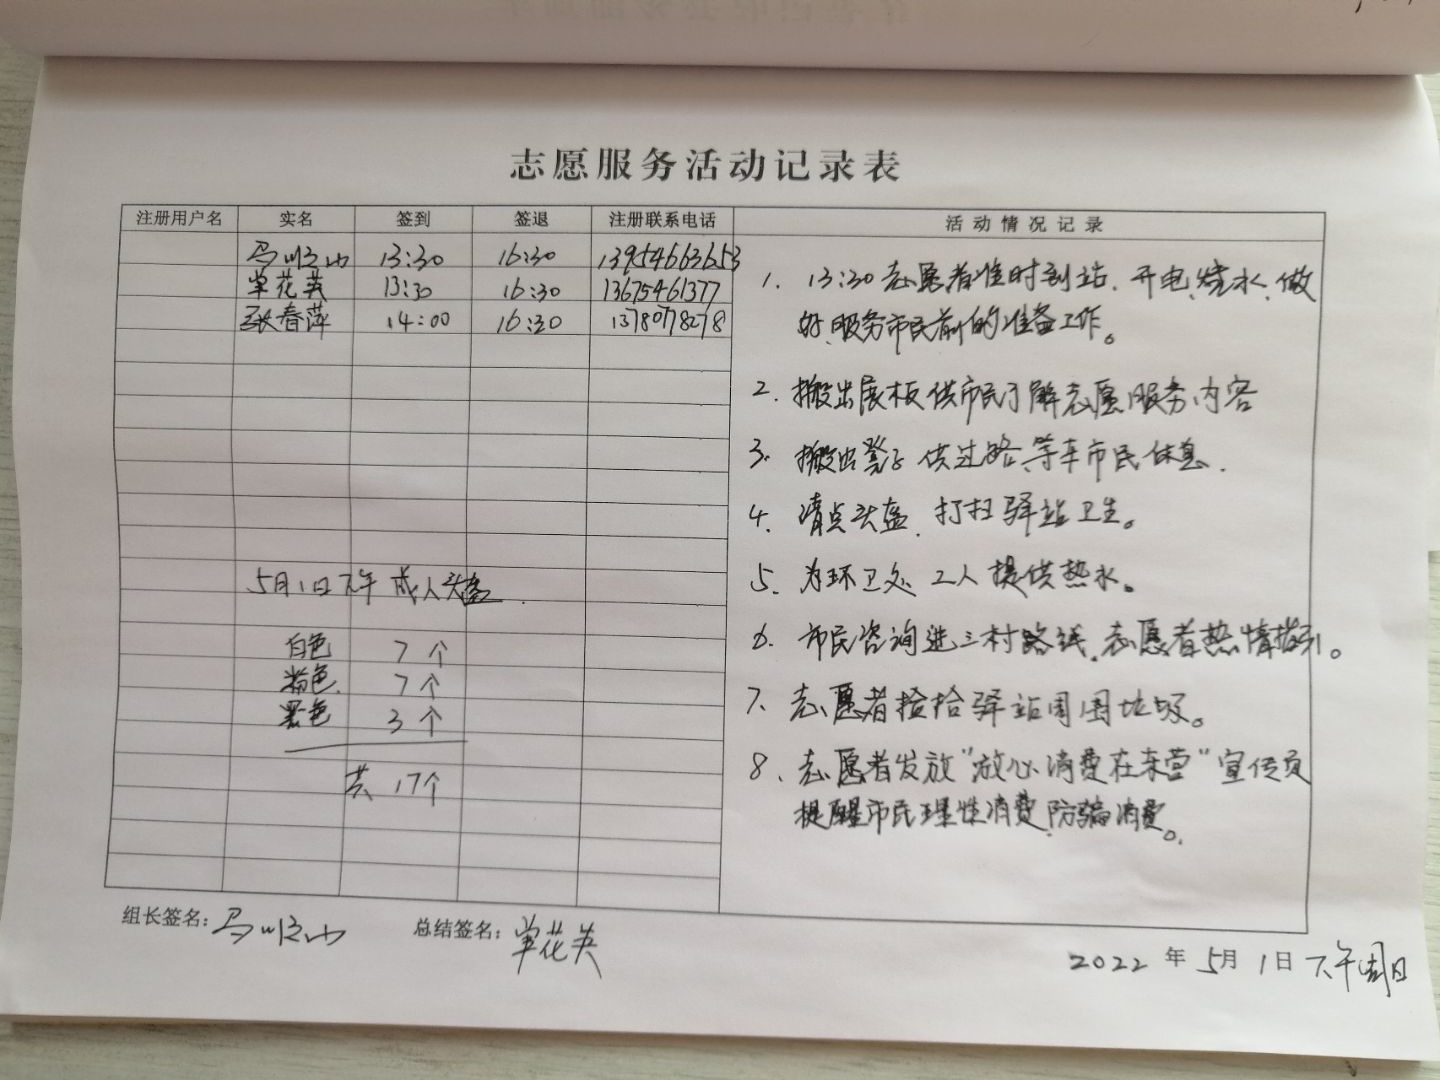 志愿服务活动记录表
注册用户名 实名 签到 签退 注册联系电话 活动情况记录
13:30 16:30 13954663653
单花英 13:30 16:30 13675461377
张春萍 14:00 16:30 1378078278
1. 13:30志愿者准时到站.开电、烧水、做
好服务市民前的准备工作。
2. 搬出展板供市民了解志愿服务内容
3. 搬出凳子供过路、等车市民休息.
4. 清点头盔、打扫驿站卫生。
5. 为环卫处工人提供热水。
6. 市民咨询进三村路线,志愿者热情指引。
7. 志愿者捡拾驿站周围垃圾。
8、志愿者发放“放心消费在东营”宣传页
提醒市民理性消费,防骗消费。
5月1日下午成人头盔.
白色 7个
粉色 7个
黑色 3个
共17个
组长签名: 总结签名:单花英
2022年5月1日下午周日